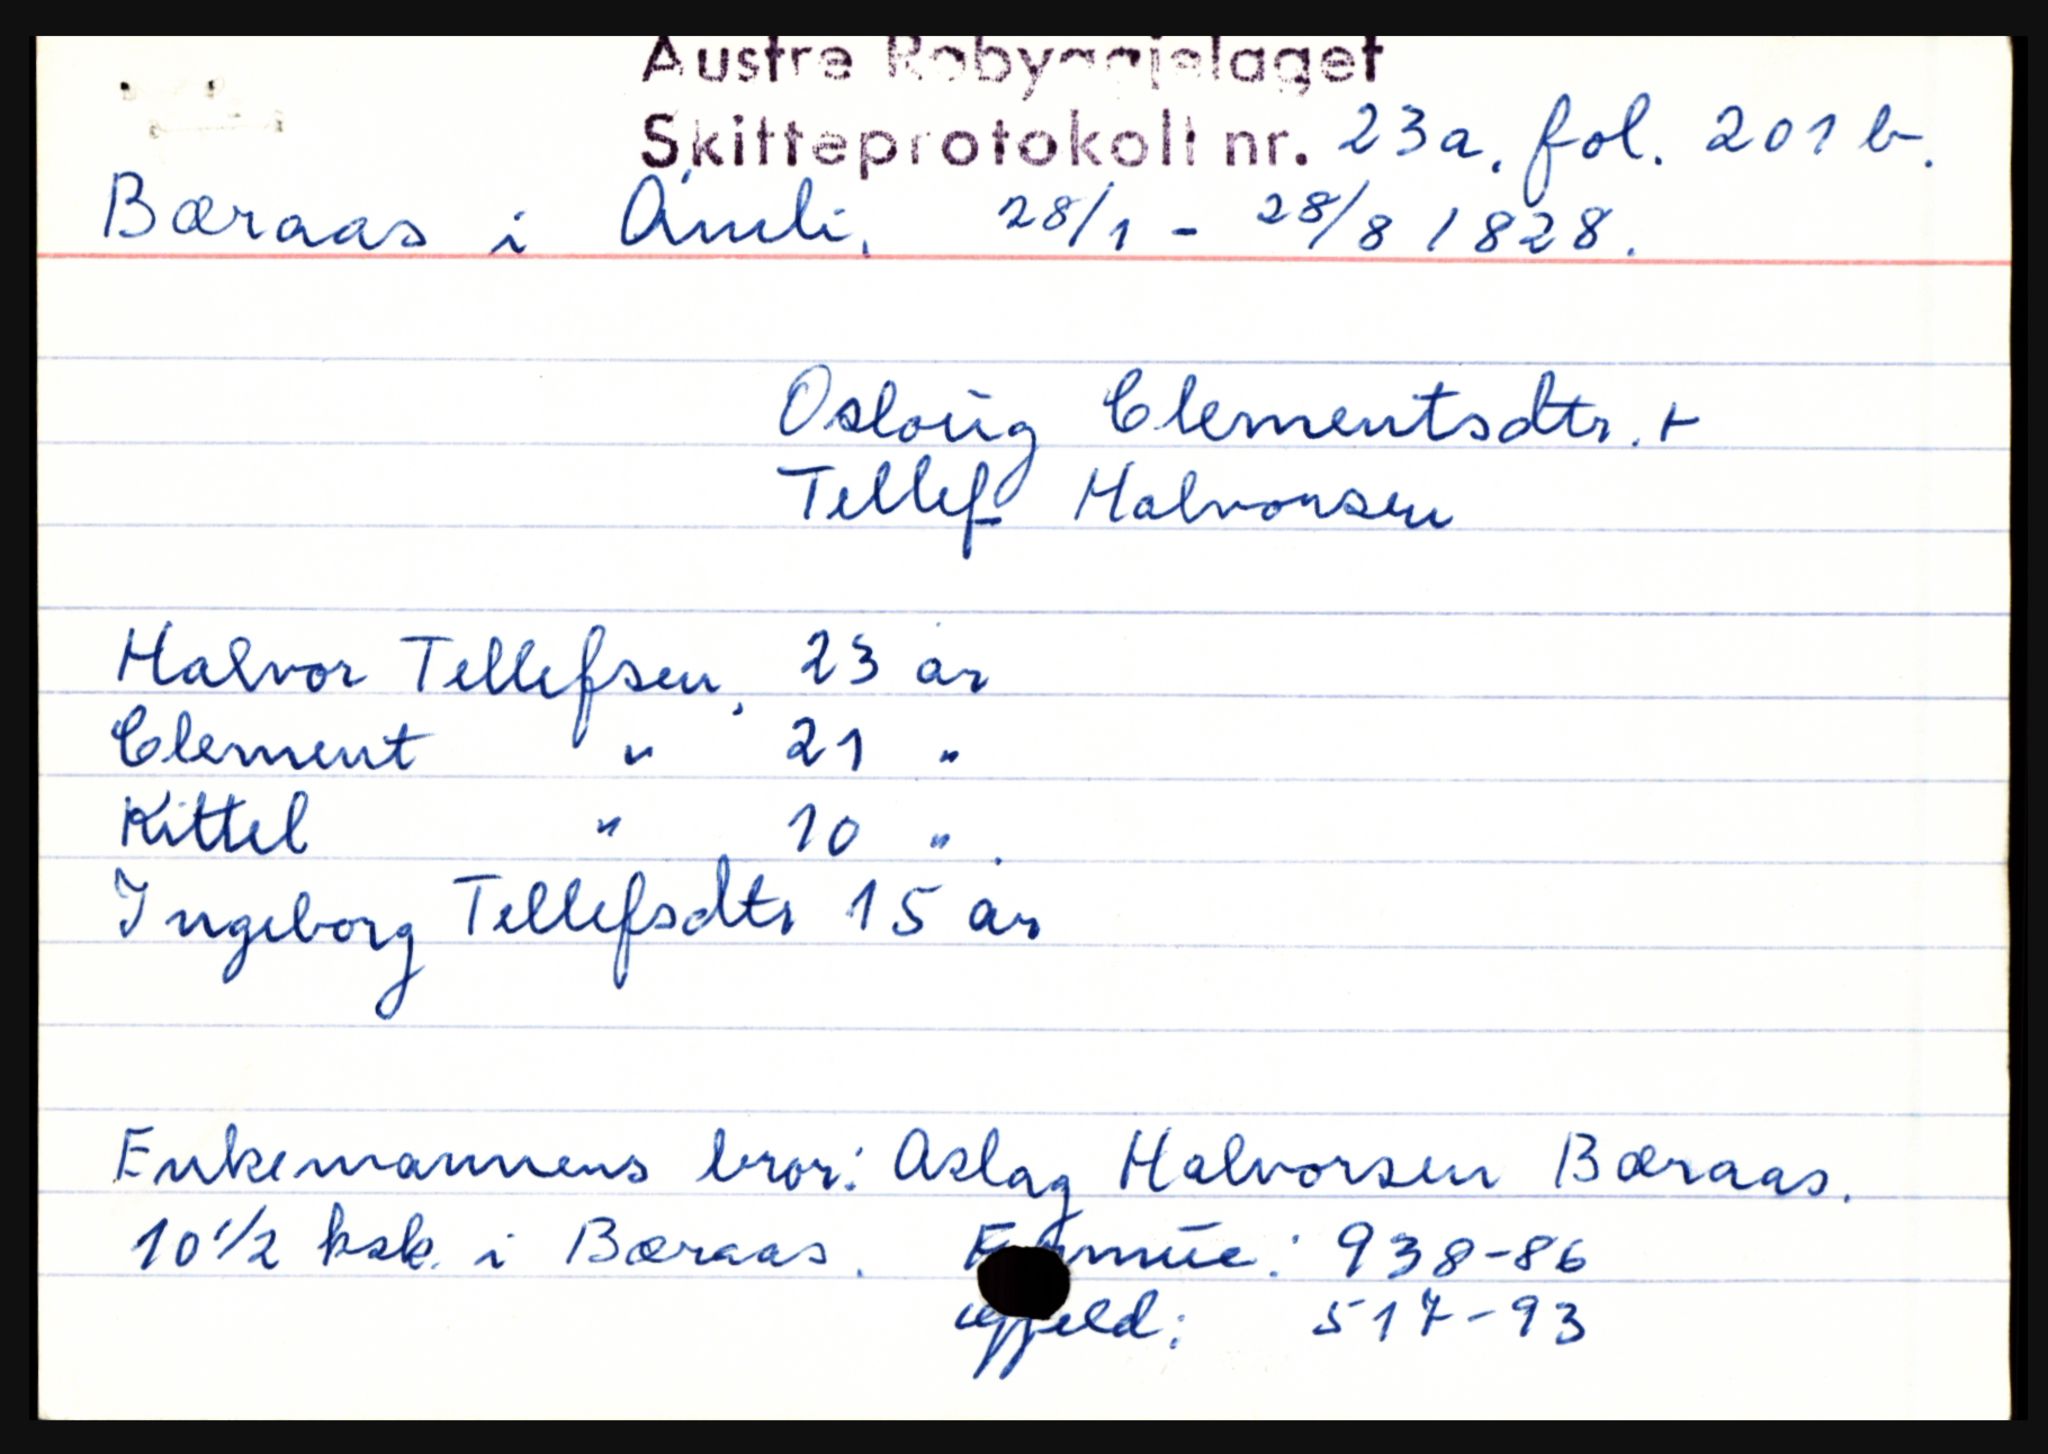 Austre Robyggjelaget
Skifteprotokoll nr. 23a. fol. 201 b.
Bæraas i Åmli. 28/1 - 28/8 1828.
Osloug Clementsdtr. +
Tellef Halvorsen
Halvor Tellefsen, 23 år
Clement " 21 "
Kittel " 10 ".
Ingeborg Tellefsdtr 15 år
Enkemannens bror: Aslag Halvorsen Bæraas.
10 1/2 ksk. i Bæraas. Formue: 938-86
gjeld: 517-93